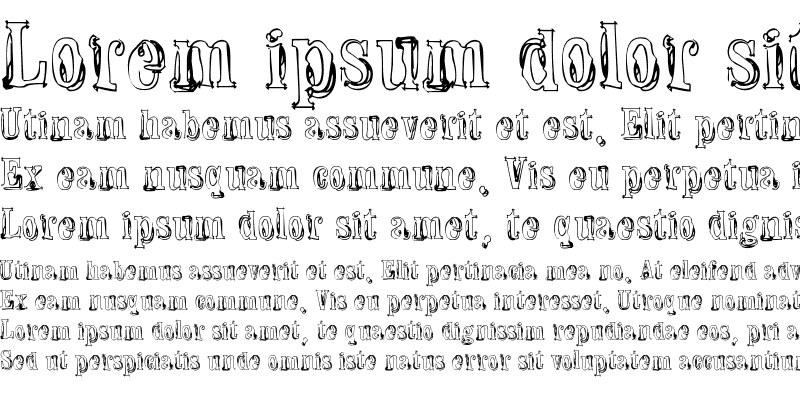 Lorem ipsum dolor sit
Utinam habemus assueverit et est. Elit pertin
Ex eam nusquam commune. Vis eu perpetua i
Lorem ipsum dolor sit amet, te quaestio dignis
Utinam habemus assueverit et est. Elit pertinacia mea no. At eleifend adv
Ex eam nusquam commune. Vis eu perpetua interesset. Utroque nominat
Lorem ipsum dolor sit amet, te quaestio dignissim repudiandae eos, pri a
Sed ut perspiciatis unde omnis iste natus error sit voluptatem accusantium